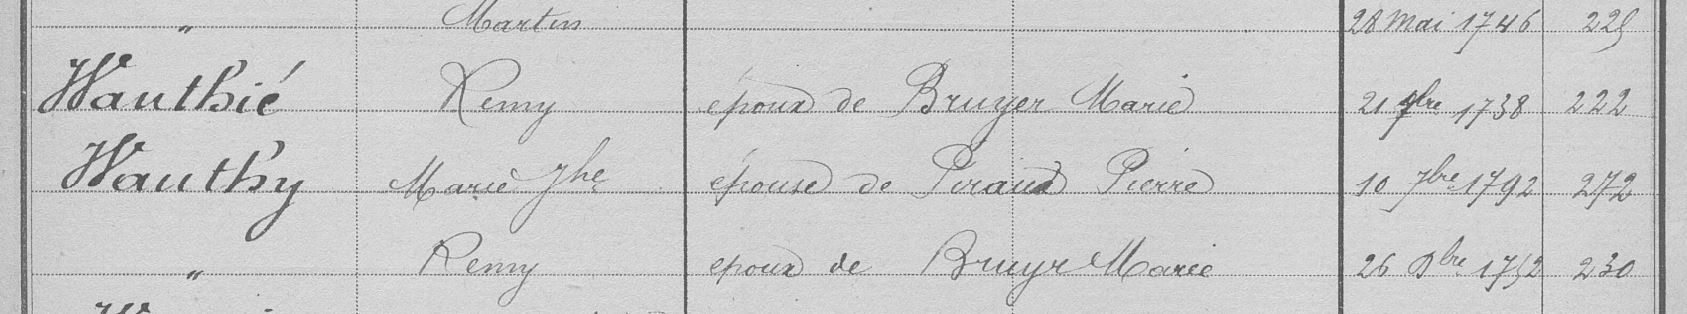 " Martin 28 Mai 1746 225
Wauthié Remy époux de Bruyer Marie 21 7bre 1738 222
Wauthy Marie Jhe épouse de Piraux Pierre 10 7bre 1792 272
" Remy epoux de Bruyr Marie 26 Dbre 1752 230